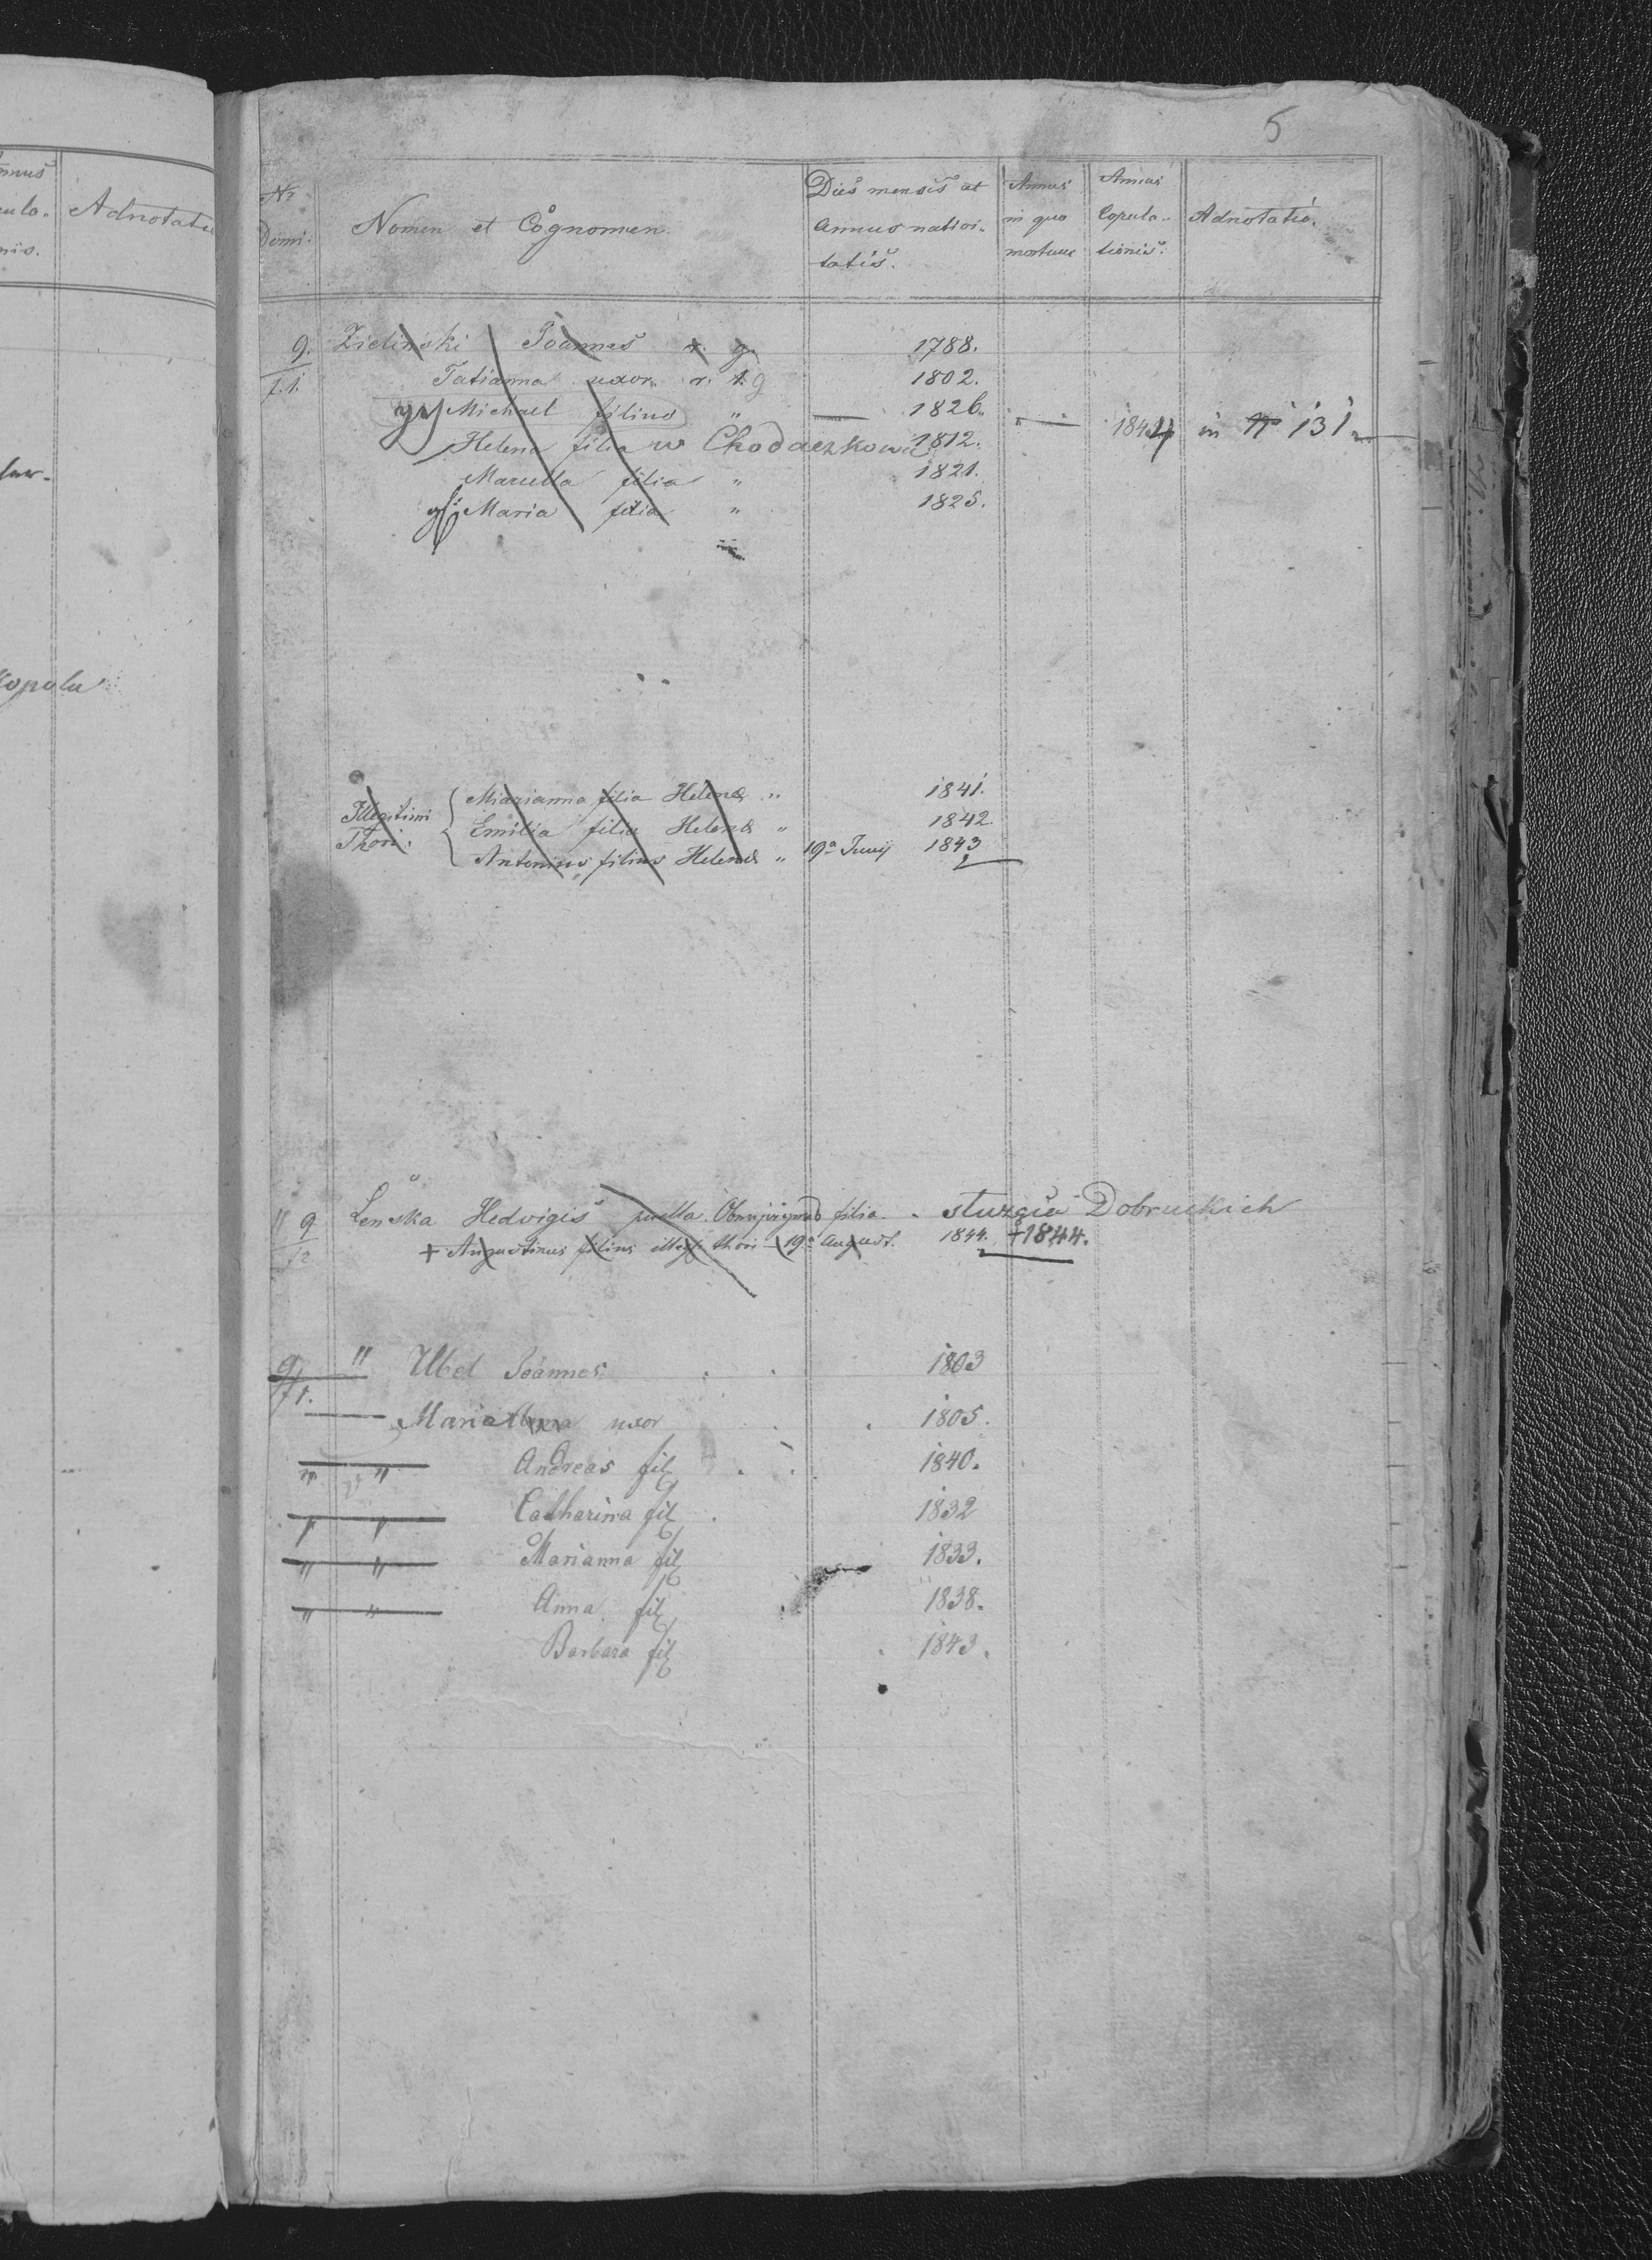 5
Adnotatio
kopolu
Nr Domi. Nomen et Cognomen. Dies mensis et Annus nativi- tatis. Annus in quo mortuus Annus Copula- tionis. Adnotatio.
9. Zielinski Joannes r. g. 1788.
f.1. Tatianna uxor r. g 1802.
Michael filius " 1826. 1844 in N 131
Helena filia w Chodaczkowie 1812.
Marella filia " 1821.
Maria filia " 1825.
Illegitimi Thori. Marianna filia Helenæ " 1841.
Emilia filia Helenæ " 1842.
Antonius filius Helenæ " 19a Junij 1843
" 9 Lenska Hedvigis puella filia. służąca Dobruckich
f2 + Augustinus filius illeg. thori 19a August. 1844. +1844.
9 " Ubel Joannes 1803
f1.
Maria uxor 1805.
" " Andreas fil 1840.
" " Catharina fil 1832
" " Marianna fil 1833.
" " Anna fil 1838.
Barbara fil 1843.